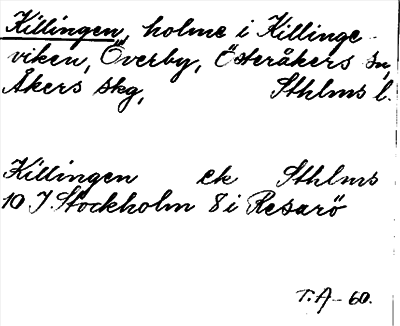 Killingen, holme i Killinge-
viken, Överby, Österåkers sn,
Åkers skg, Sthlms l.
Killingen ek Sthlms
10 J. Stockholm 8 i Resarö
T.A-60.